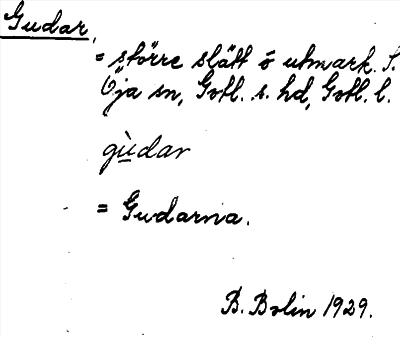 Gudar,
= större slätt o utmark. S.
Öja sn, Gotl. s. hd, Gotl. l.
gùdar
= Gudarna.
B. Bolin 1929.